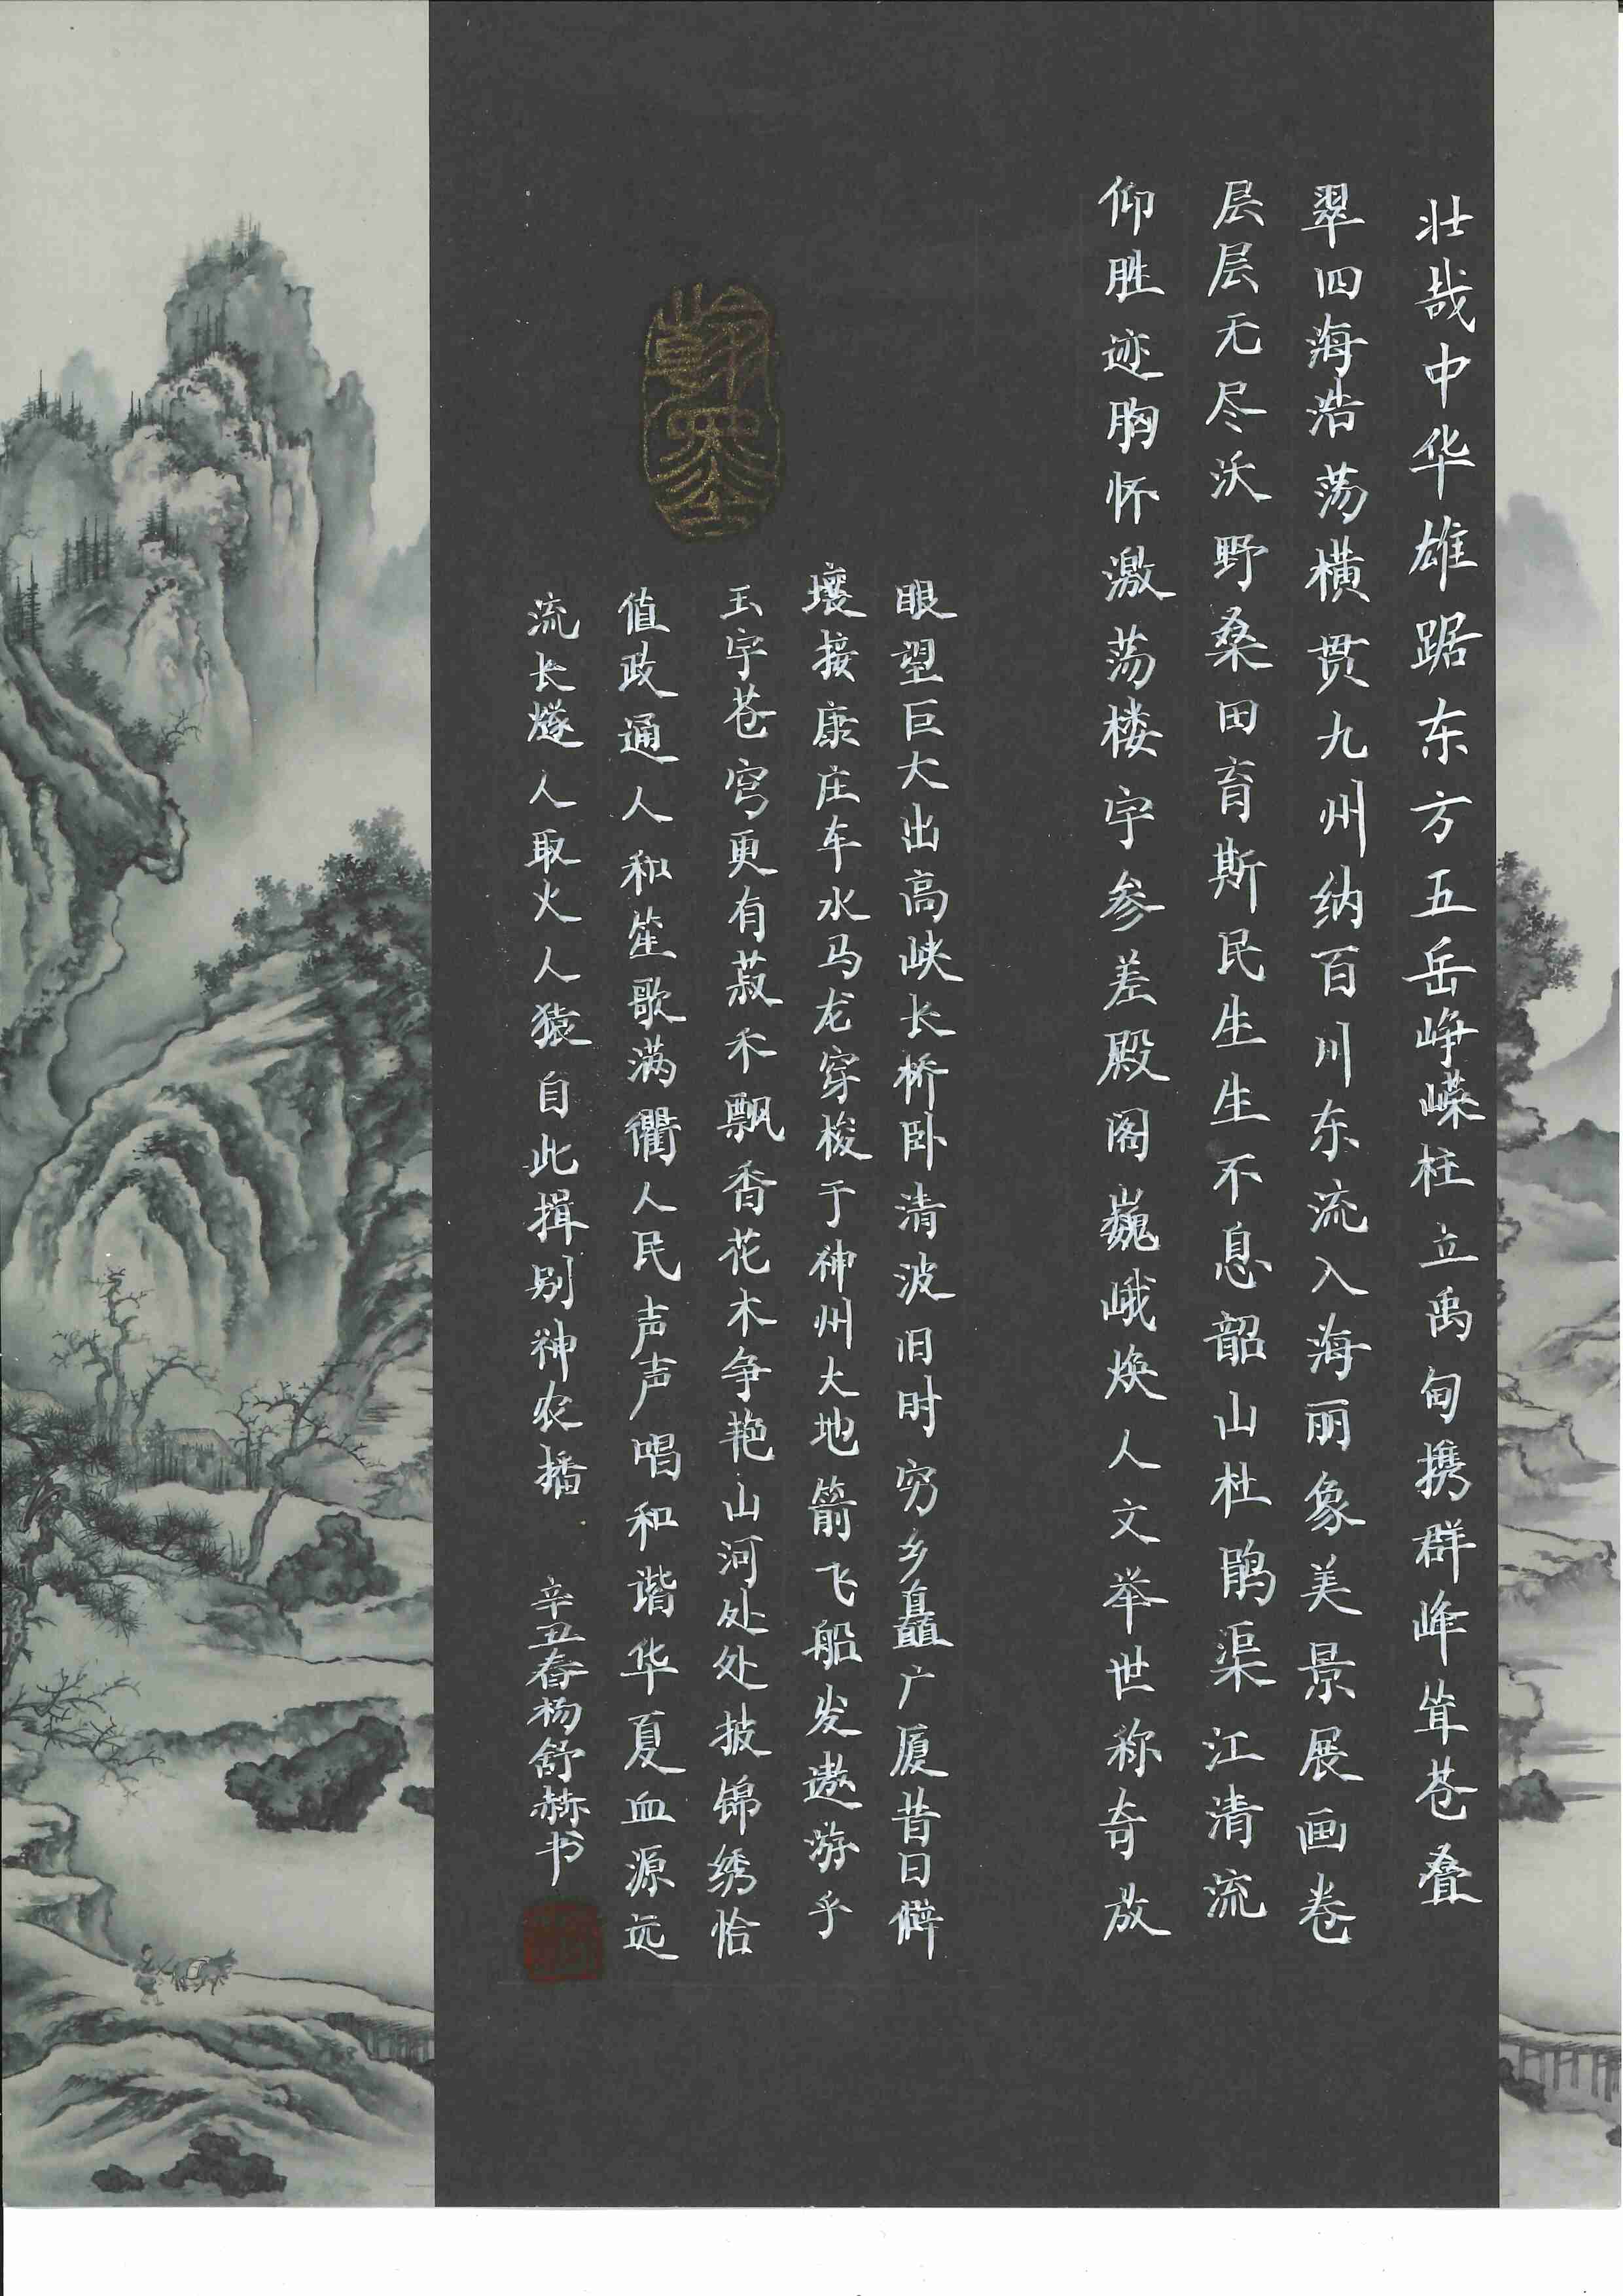 壮哉中华雄踞东方五岳峥嵘柱立禹甸携群峰耸苍叠
翠四海浩荡横贯九州纳百川东流入海丽象美景展画卷
层层无尽沃野桑田育斯民生生不息韶山杜鹃渠江清流
仰胜迹胸怀激荡楼宇参差殿阁巍峨焕人文举世称奇放
眼望巨大出高峡长桥卧清波旧时穷乡矗广厦昔日僻
壤接康庄车水马龙穿梭于神州大地箭飞船发遨游乎
玉宇苍穹更有菽禾飘香花木争艳山河处处披锦绣恰
值政通人和笙歌满衢人民声声唱和谐华夏血源远
流长燧人取火人猿自此揖别神农播
辛丑春杨舒赫书
翰墨